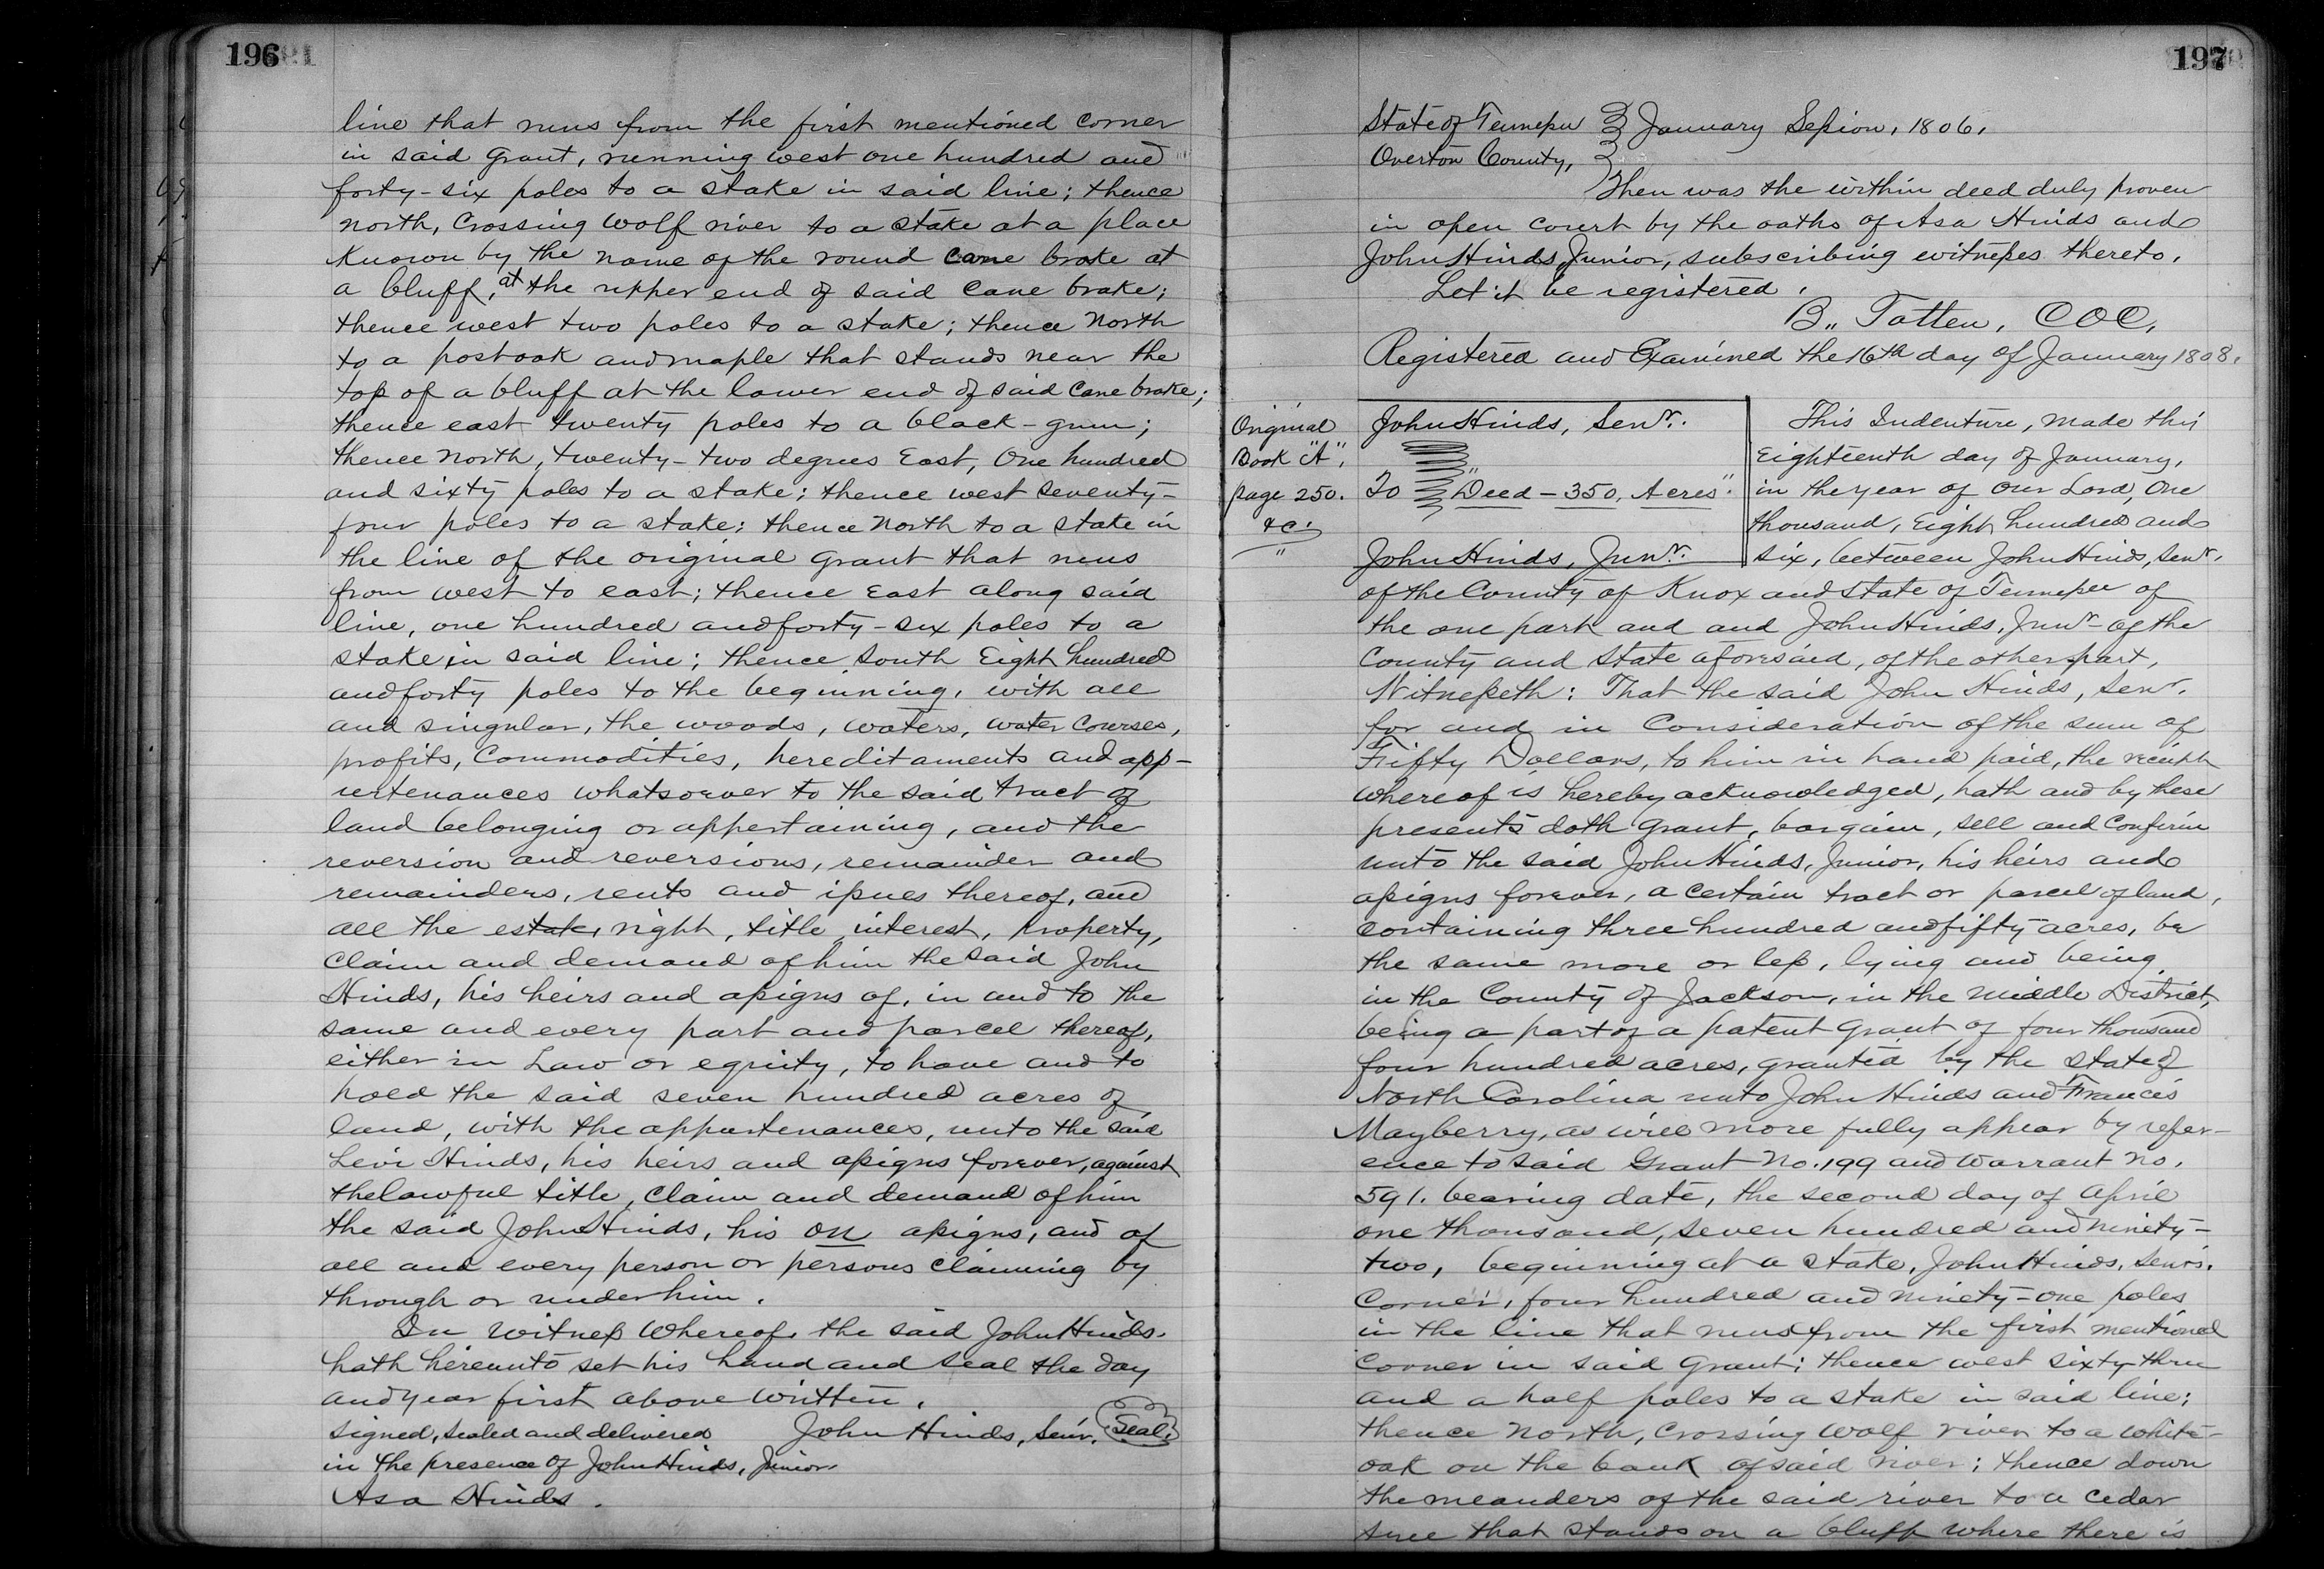 196
line that runs from the first mentioned corner
in said Grant, running west one hundred and
forty-six poles to a stake in said line; thence
north, crossing Wolf river to a stake at a place
Known by the name of the round cane brake at
a bluff, at the upper end of said cane brake;
thence west two poles to a stake; thence North
to a post oak and maple that stands near the
top of a bluff at the lower end of said cane brake;
thence east twenty poles to a black-gum;
thence North, twenty-two degrees East, One hundred
and sixty poles to a stake; thence west seventy-
four poles to a stake; thence North to a stake in
the line of the original Grant that runs
from west to east; thence East along said
line, one hundred and forty-six poles to a
stake in said line; thence South Eight hundred
and forty poles to the beginning, with all
and singular, the woods, waters, water courses,
profits, Commodities, hereditaments and app-
urtenances whatsoever to the said tract of
land belonging or appertaining, and the
reversion and reversions, remainder and
remainders, rents and issues thereof, and
all the estate, right, title interest, property,
Claim and demand of him the said John
Hinds, his heirs and assigns of, in and to the
same and every part and parcel thereof,
either in Law or equity, to have and to
hold the said seven hundred acres of
land, with the appurtenances, unto the said
Levi Hinds, his heirs and assigns forever, against
the lawful title, Claim and demand of him
the said John Hinds, his on assigns, and of
all and every person or persons claiming by
through or under him.
In Witness Whereof, the said John Hinds.
hath hereunto set his hand and seal the day
and year first above written.
Signed, sealed and delivered John Hinds, Senr. Seal.
in the presence of John Hinds, Junior.
Asa Hinds.
197
State of Tennessee January Session, 1806.
Overton County,
Then was the within deed duly proven
in open court by the oaths of Asa Hinds and
John Hinds, Junior, subscribing witnesses thereto.
Let it be registered.
B,, Totten, COC.
Registered and Examined the 16th day of January 1808.
Original
Book "A",
page 250.
&c.
John Hinds, Senr.
To "Deed - 350, Acres".
John Hinds, Junr.
This Indenture, made this
Eighteenth day of January,
in the year of our Lord, One
thousand, Eight hundred and
six, between John Hinds, Senr.
of the County of Knox and State of Tennessee of
the one part and and John Hinds, Junr- of the
County and State aforesaid, of the other part,
Witnesseth: That the said John Hinds, Senr.
for and in Consideration of the sum of
Fifty Dollars, to him in hand paid, the receipt
whereof is hereby acknowledged, hath and by these
presents doth Grant, bargain, sell and Confirm
unto the said John Hinds, Junior, his heirs and
assigns forever, a certain tract or parcel of land,
Containing three hundred and fifty acres, be
the same more or less, lying and being
in the County of Jackson, in the Middle District,
being a part of a patent Grant of four thousand
four hundred acres, granted by the State of
North Carolina unto John Hinds and Francis
Mayberry, as will more fully appear by refer-
ence to said Grant No. 199 and Warrant No.
591. bearing date, the second day of April
one thousand, seven hundred and ninety-
two, beginning at a stake, John Hinds, Senr's.
Corner, four hundred and ninety-one poles
in the line that runs from the first mentioned
corner in said Grant; thence west sixty three
and a half poles to a stake in said line;
thence North, Crossing Wolf river to a white-
oak on the bank of said river; thence down
the meanders of the said river to a cedar
tree that stands on a bluff where there is